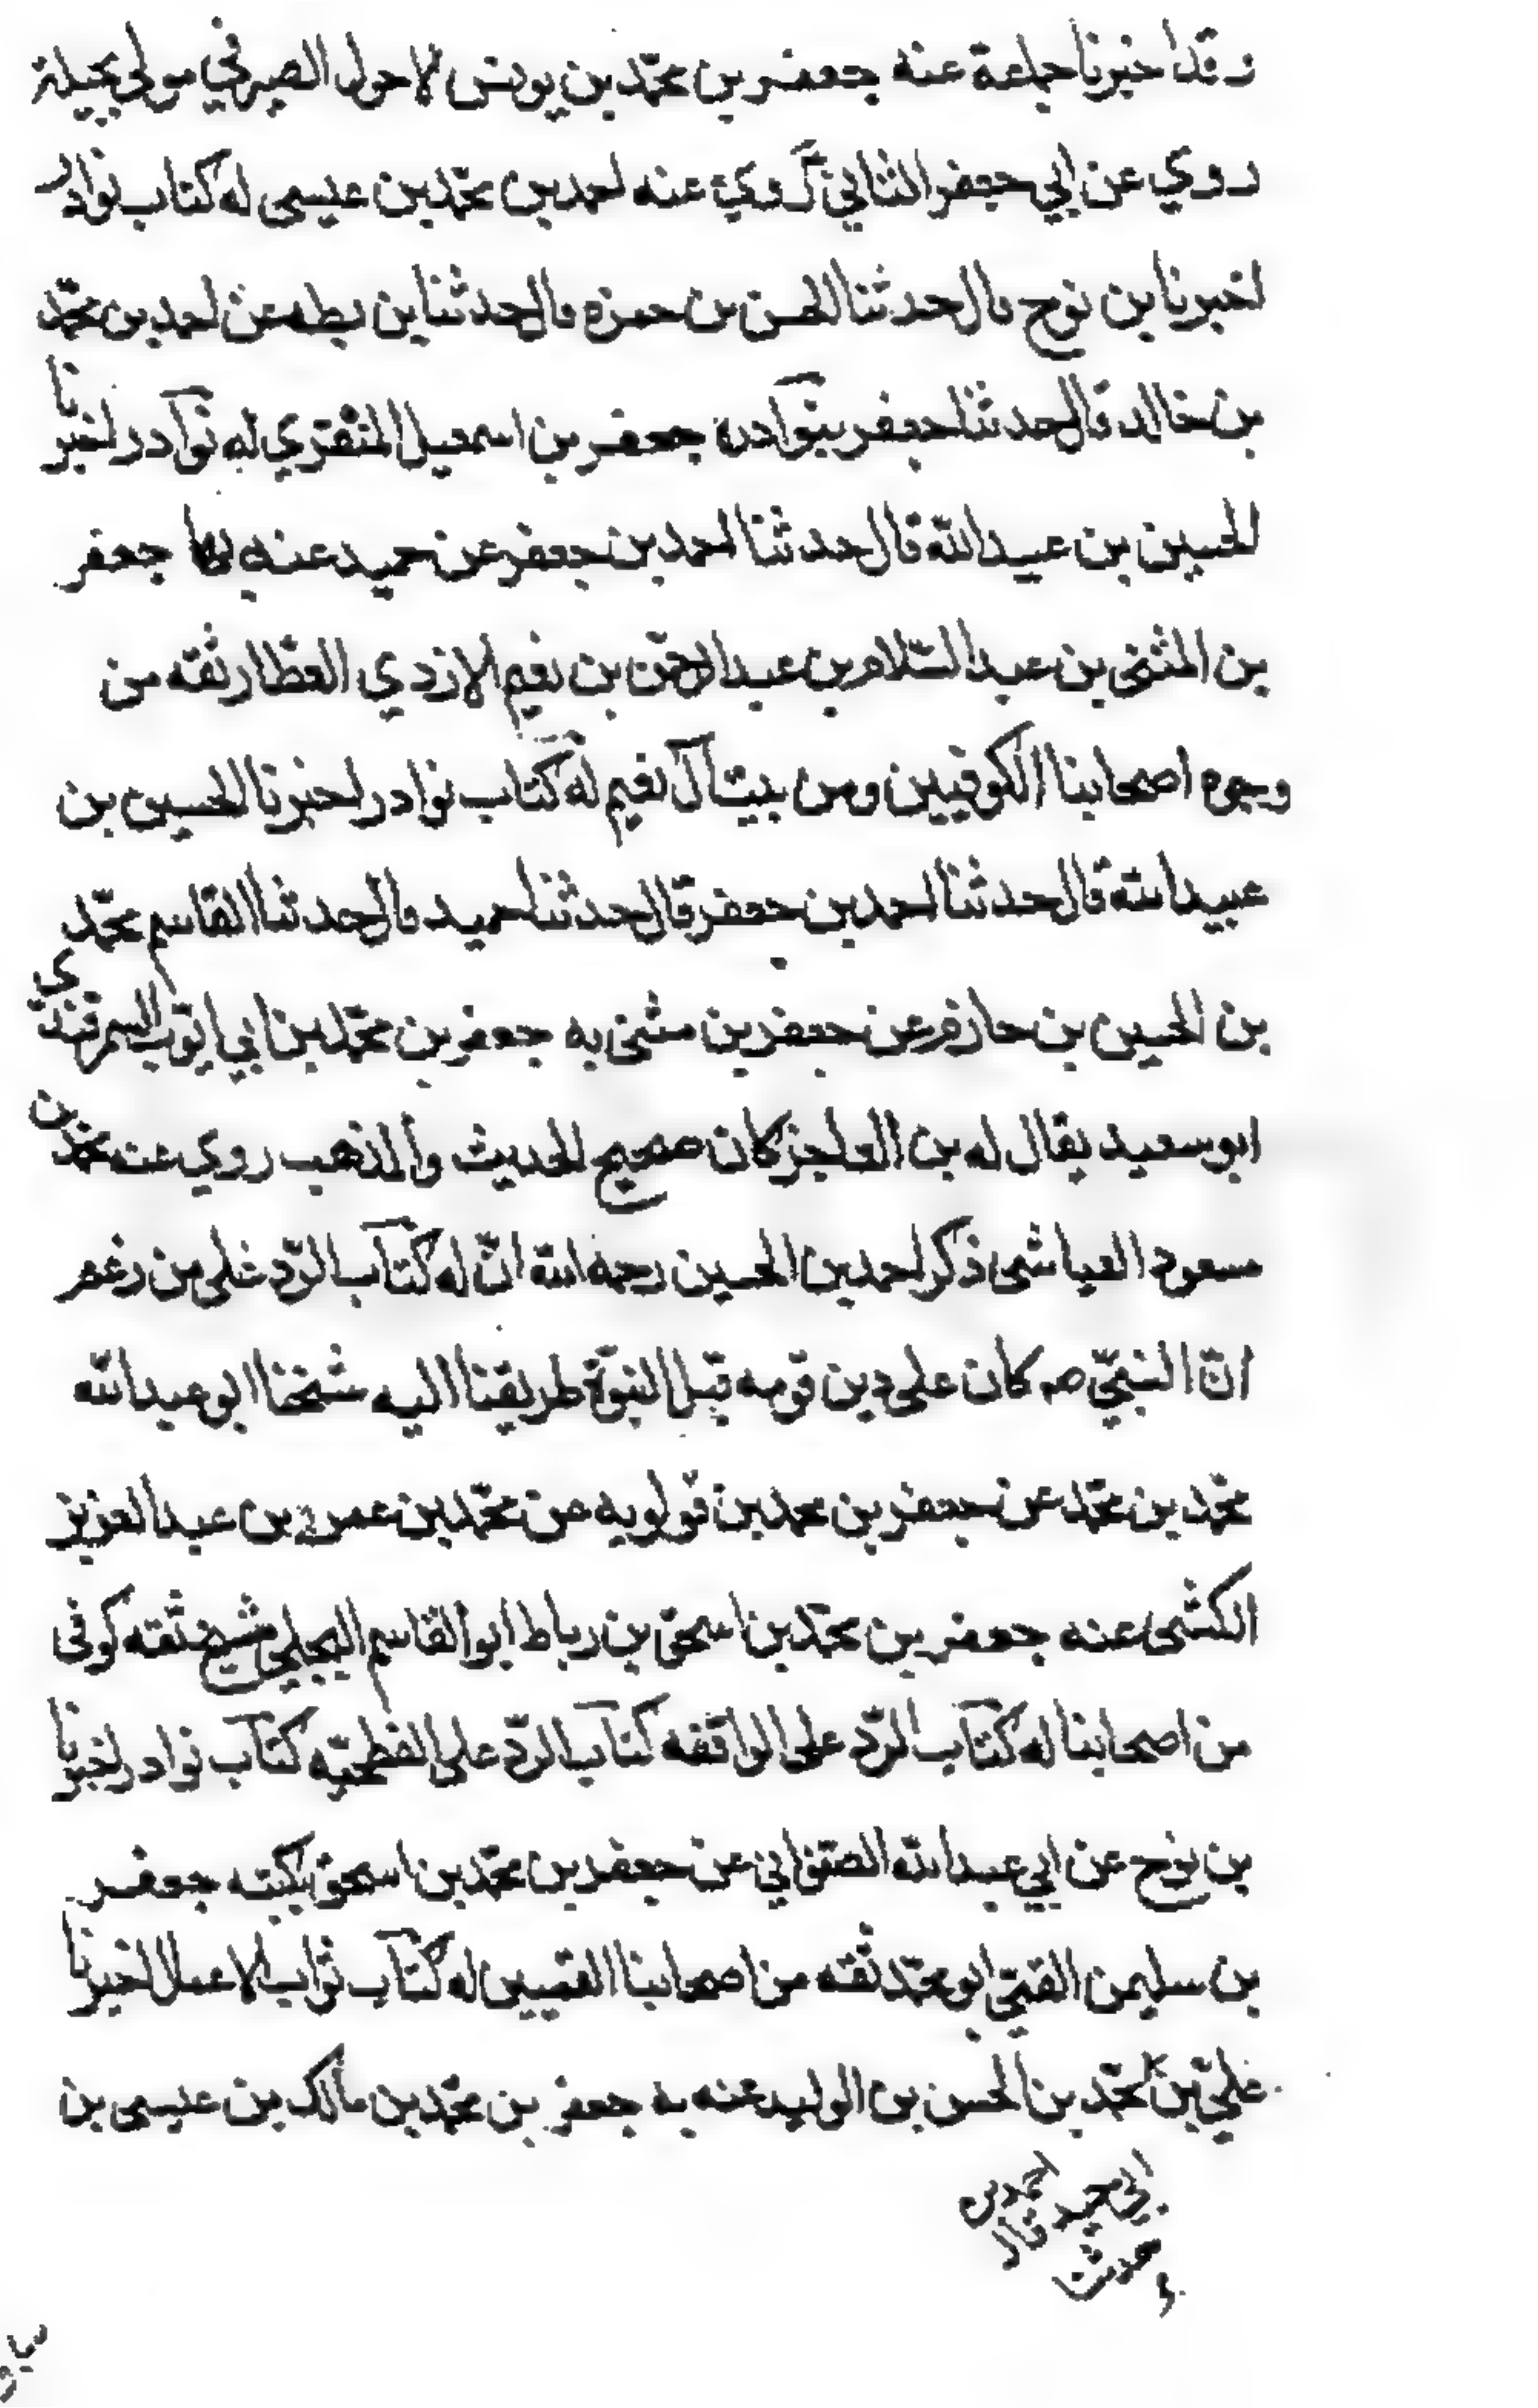 وقد اخبرنا جماعة عنه جعفر بن محمّد بن يونس الاحول الصيرفي مولى بجيلة
روي عن ابي جعفر الثاني ع روي عنه احمد بن محمّد بن عيسى له كتاب نوادر
اخبرنا بن نوح قال حدثنا الحسن بن حمزه قال حدثنا بن بطه عن احمد بن محمّد
بن خالد قال حدثنا جعفر بنوادره جعفر بن اسمعيل المنقري له نوادر اخبرنا
الحسين بن عبيدالله قال حدثنا احمد بن جعفر عن حميد عنه بها جعفر
بن المثنى بن عبد السّلام بن عبد الرحمّن بن نعيم الازدي العطّار ثقه من
وجوه اصحابنا الكوفيين ومن بيت آل نعيم له كتاب نوادر اخبرنا الحسين بن
عبيدالله قال حدثنا احمد بن جعفر قال حدثنا حميد قال حدثنا القاسم محمّد
بن الحسين بن حازم عن جعفر بن مثنى به جعفر بن محمّد بن ابي ايّوب السمرقندي
ابو سعيد يقال له بن العاجز كان صحيح الحديث والمذهب روي عنه محمّد بن
مسعود العياشى ذكر احمد بن الحسين رحمه الله انّ له كتاب الرّد على من زعم
انّ النبيّ صـ كان على دين قومه قبل النبوّة طريقنا اليه شيخنا ابو عبدالله
محمّد بن محمّد عن جعفر بن محمد بن قولويه عن محمّد بن عمر بن عبد العزيز
الكشى عنه جعفر بن محمّد بن اسحق بن رباط ابو القاسم البجلي شيخ ثقه كوفى
من اصحابنا له كتاب الرّد على الواقفه كتاب الرّد على الفطحيّه كتاب نوادر اخبرنا
بن نوح عن ابي عبدالله الصفواني عن جعفر بن محمّد بن اسحق بكتبه جعفر
بن سليمن القميّ ابو محمّد ثقه من اصحابنا القميين له كتاب ثواب الاعمال اخبرنا
عليّ بن احمد محمّد بن الحسن بن الوليد عنه به جعفر بن محمّد بن مالك بن عيسى بن